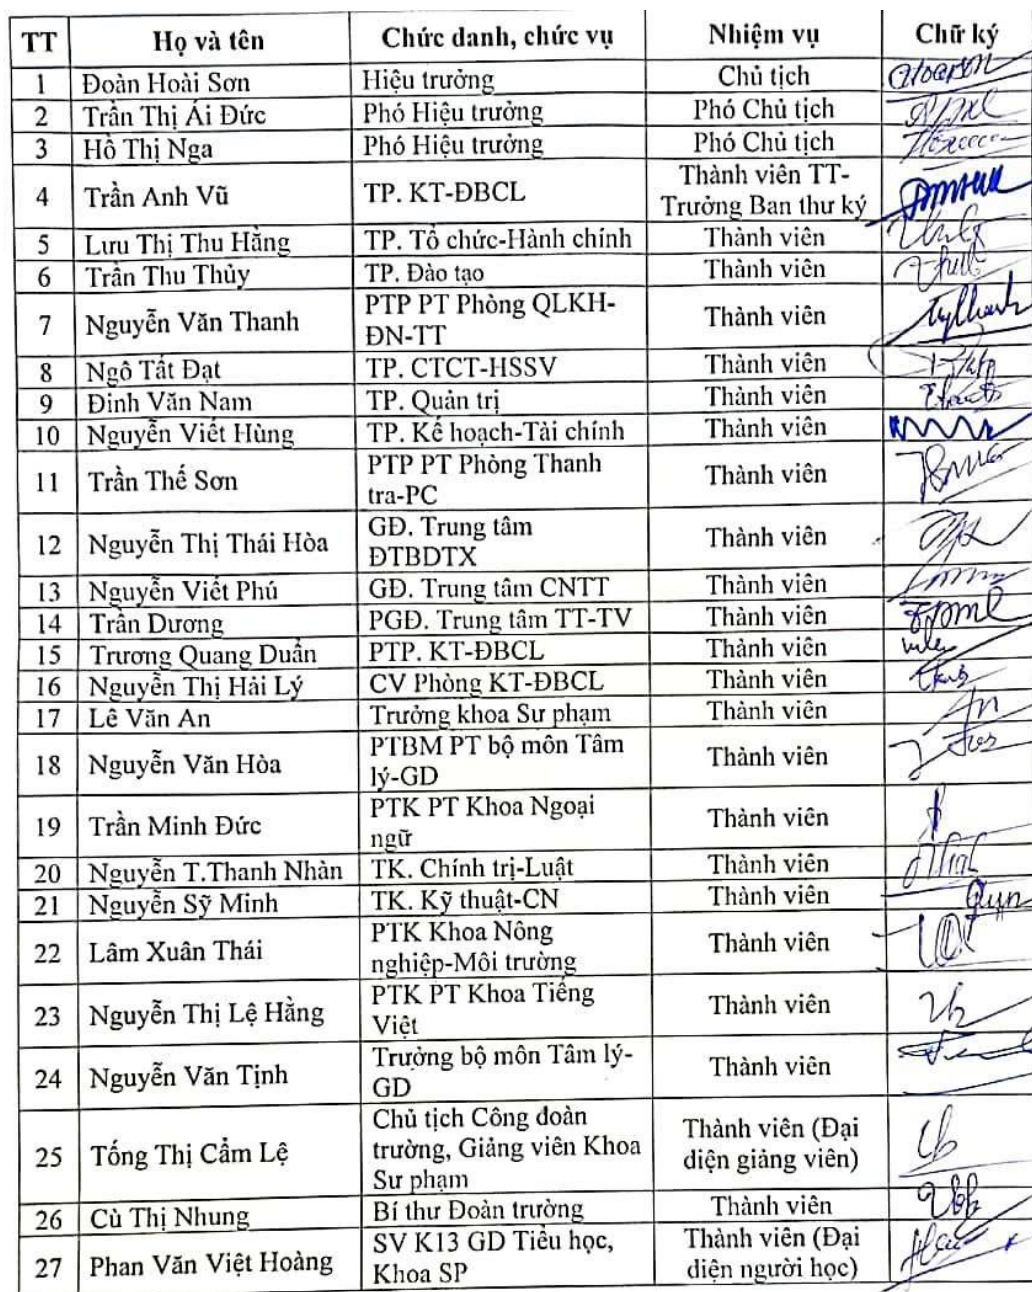 TT Họ và tên Chức danh, chức vụ Nhiệm vụ Chữ ký
1 Đoàn Hoài Sơn Hiệu trưởng Chủ tịch
2 Trần Thị Ái Đức Phó Hiệu trưởng Phó Chủ tịch
3 Hồ Thị Nga Phó Hiệu trưởng Phó Chủ tịch
4 Trần Anh Vũ TP. KT-ĐBCL Thành viên TT-
Trưởng Ban thư ký
5 Lưu Thị Thu Hằng TP. Tổ chức-Hành chính Thành viên
6 Trần Thu Thủy TP. Đào tạo Thành viên
7 Nguyễn Văn Thanh PTP PT Phòng QLKH-
ĐN-TT Thành viên
8 Ngô Tất Đạt TP. CTCT-HSSV Thành viên
9 Đinh Văn Nam TP. Quản trị Thành viên
10 Nguyễn Viết Hùng TP. Kế hoạch-Tài chính Thành viên
11 Trần Thế Sơn PTP PT Phòng Thanh
tra-PC Thành viên
12 Nguyễn Thị Thái Hòa GĐ. Trung tâm
ĐTBDTX Thành viên
13 Nguyễn Viết Phú GĐ. Trung tâm CNTT Thành viên
14 Trần Dương PGĐ. Trung tâm TT-TV Thành viên
15 Trương Quang Duẩn PTP. KT-ĐBCL Thành viên
16 Nguyễn Thị Hải Lý CV Phòng KT-ĐBCL Thành viên
17 Lê Văn An Trưởng khoa Sư phạm Thành viên
18 Nguyễn Văn Hòa PTBM PT bộ môn Tâm
lý-GD Thành viên
19 Trần Minh Đức PTK PT Khoa Ngoại
ngữ Thành viên
20 Nguyễn T.Thanh Nhàn TK. Chính trị-Luật Thành viên
21 Nguyễn Sỹ Minh TK. Kỹ thuật-CN Thành viên
22 Lâm Xuân Thái PTK Khoa Nông
nghiệp-Môi trường Thành viên
23 Nguyễn Thị Lệ Hằng PTK PT Khoa Tiếng
Việt Thành viên
24 Nguyễn Văn Tịnh Trưởng bộ môn Tâm lý-
GD Thành viên
25 Tống Thị Cẩm Lệ Chủ tịch Công đoàn
trường, Giảng viên Khoa
Sư phạm Thành viên (Đại
diện giảng viên)
26 Cù Thị Nhung Bí thư Đoàn trường Thành viên
27 Phan Văn Việt Hoàng SV K13 GD Tiểu học,
Khoa SP Thành viên (Đại
diện người học)